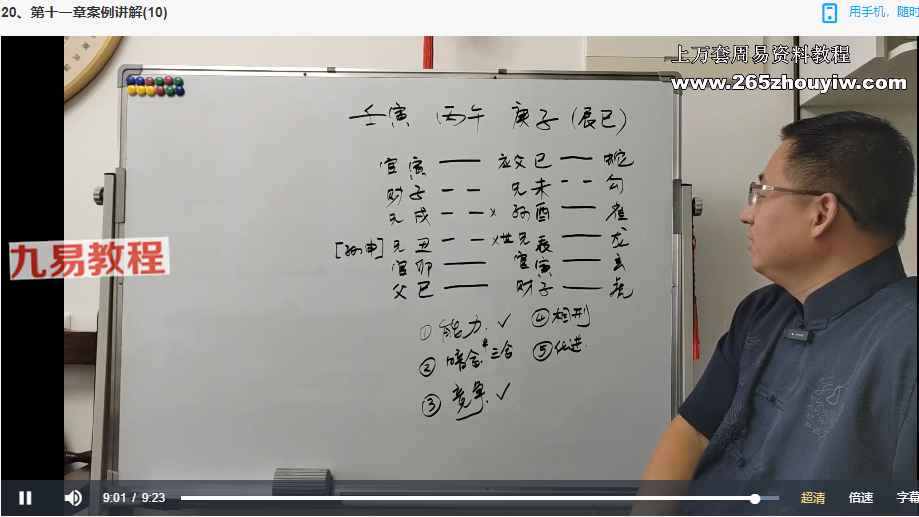 20、第十一章案例讲解(10)
用手机，随时
上万套周易资料教程
www.265zhouyiw.com
壬寅 丙午 庚子 (辰巳)
官寅 应父巳 蛇
财子 兄未 勾
兄戌 × 孙酉 雀
[孙申] 兄丑 × 世兄辰 龙
官卯 官寅 玄
父巳 财子 虎
九易教程
① 能力. ✓ ④ 相刑
② 暗合. 三合 ⑤ 化进.
③ 竞争. ✓
9:01 / 9:23
超清 倍速 字幕